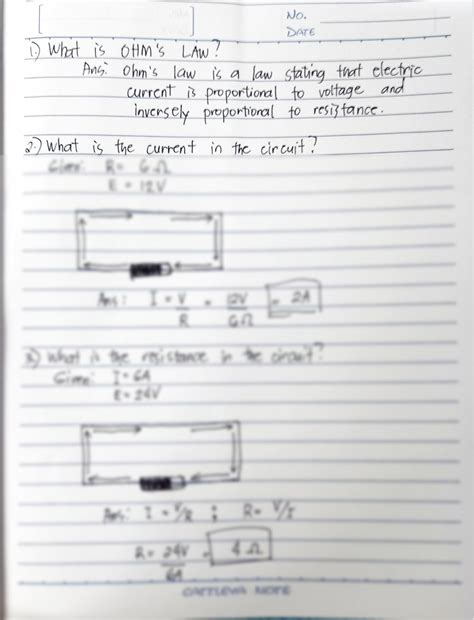 NO.
DATE
1.) What is OHM's LAW?
Ans: Ohm's law is a law stating that electric
current is proportional to voltage and
inversely proportional to resistance.
2.) What is the current in the circuit?
Given: R = 6Ω
E = 12V
Ans: I = V/R = 12V/6Ω = 2A
3.) What is the resistance in the circuit?
Given: I = 6A
E = 24V
Ans: I = V/R ; R = V/I
R = 24V/6A = 4Ω
CATTLEYA NOTE